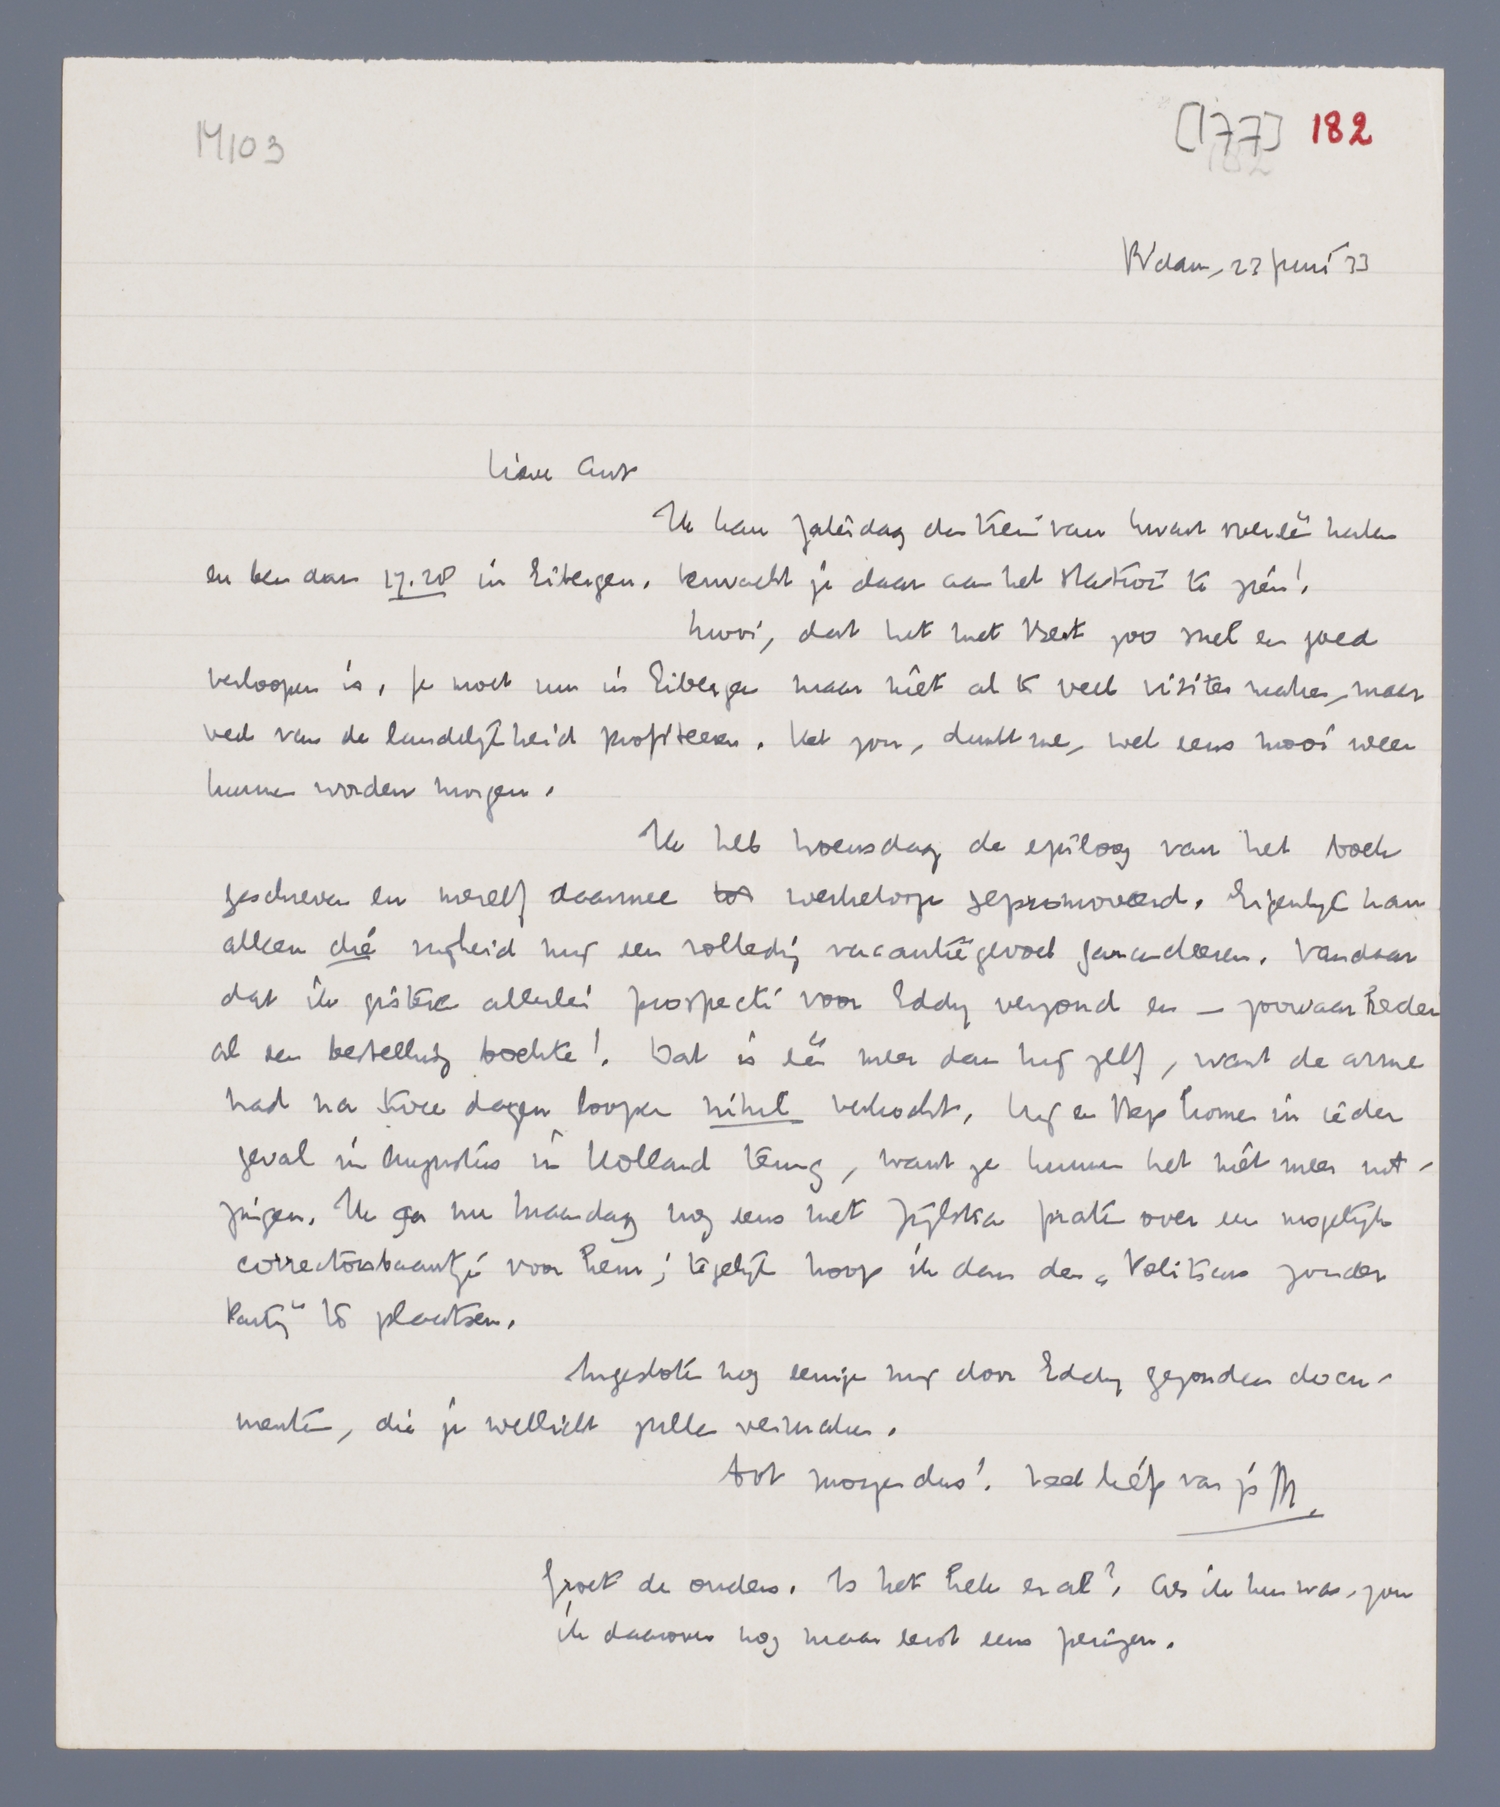 M103
[177] 182
182
R'dam, 23 Juni '33
Lieve Ant
Ik kan Zaterdag den trein van kwart over één halen
en ben dan 17.28 in Eibergen. Verwacht je daar aan het station te zien!
Mooi, dat het met Bert zoo snel en goed
verloopen is. Je moet nu in Eibergen maar niet al te veel visites maken, maar
veel van de landelijkheid profiteeren. Het zou, dunkt me, wel eens mooi weer
kunnen worden morgen.
Ik heb Woensdag de epiloog van het boek
geschreven en mezelf daarmee tot werkeloze gepromoveerd. Eigenlijk kan
alleen die vrijheid mij een volledig vacantiegevoel garandeeren. Vandaar
dat ik gisteren allerlei prospecti voor Eddy verzond en – zoowaar heden
al een bestelling boekte! Dat is één meer dan hij zelf, want de arme
had na twee dagen loopen nihil verkocht. Hij en Bep komen in ieder
geval in Augustus in Holland terug, want ze kunnen het niet meer uit-
zingen. Ik ga nu Maandag nog eens met Zijlstra praten over een mogelijk
correctorsbaantje voor hem; tegelijk hoop ik dan den „Politicus zonder
Partij" te plaatsen.
Ingesloten nog eenige mij door Eddy gezonden docu-
menten, die je wellicht zullen vermaken.
Tot morgen dus! Veel liefs van je M.
Groet de ouders. Is het hek er al? Als ik hun was, zou
ik daarover nog maar eerst eens prakizeeren.